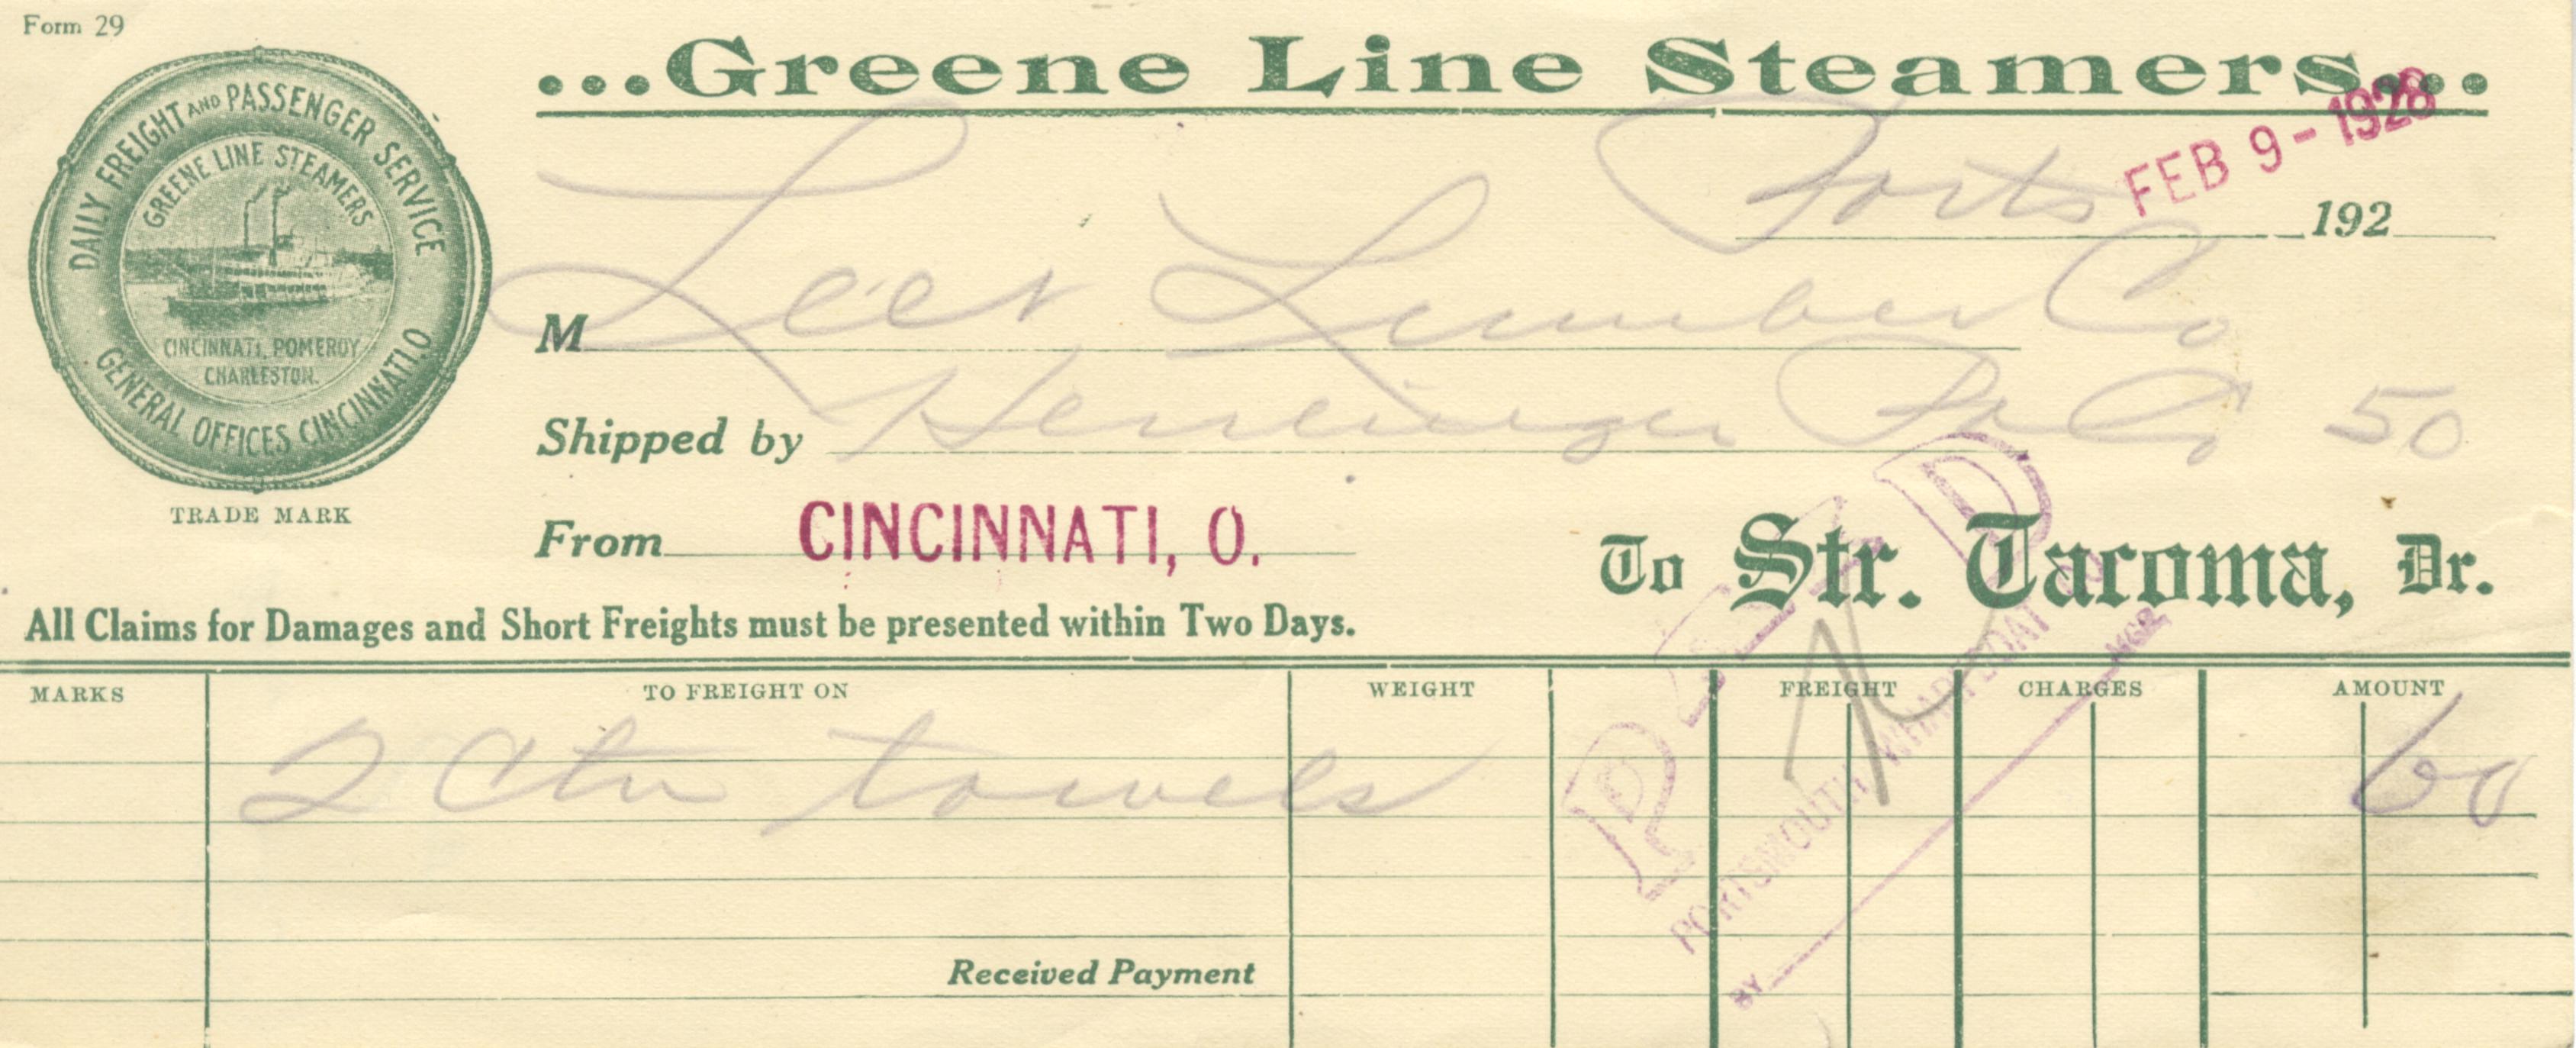 Form 29
...Greene Line Steamers...
DAILY FREIGHT AND PASSENGER SERVICE
GREENE LINE STEAMERS
CINCINNATI, POMEROY
CHARLESTON.
GENERAL OFFICES CINCINNATI.O
TRADE MARK
Ports
FEB 9 - 1928
192
M Lumber Co
Shipped by Co 50
From CINCINNATI, O.
To Str. Tacoma, Dr.
All Claims for Damages and Short Freights must be presented within Two Days.
MARKS TO FREIGHT ON WEIGHT FREIGHT CHARGES AMOUNT
2 Ctn towels 60
PAID
PORTSMOUTH WHARFBOAT CO
BY MGR.
Received Payment